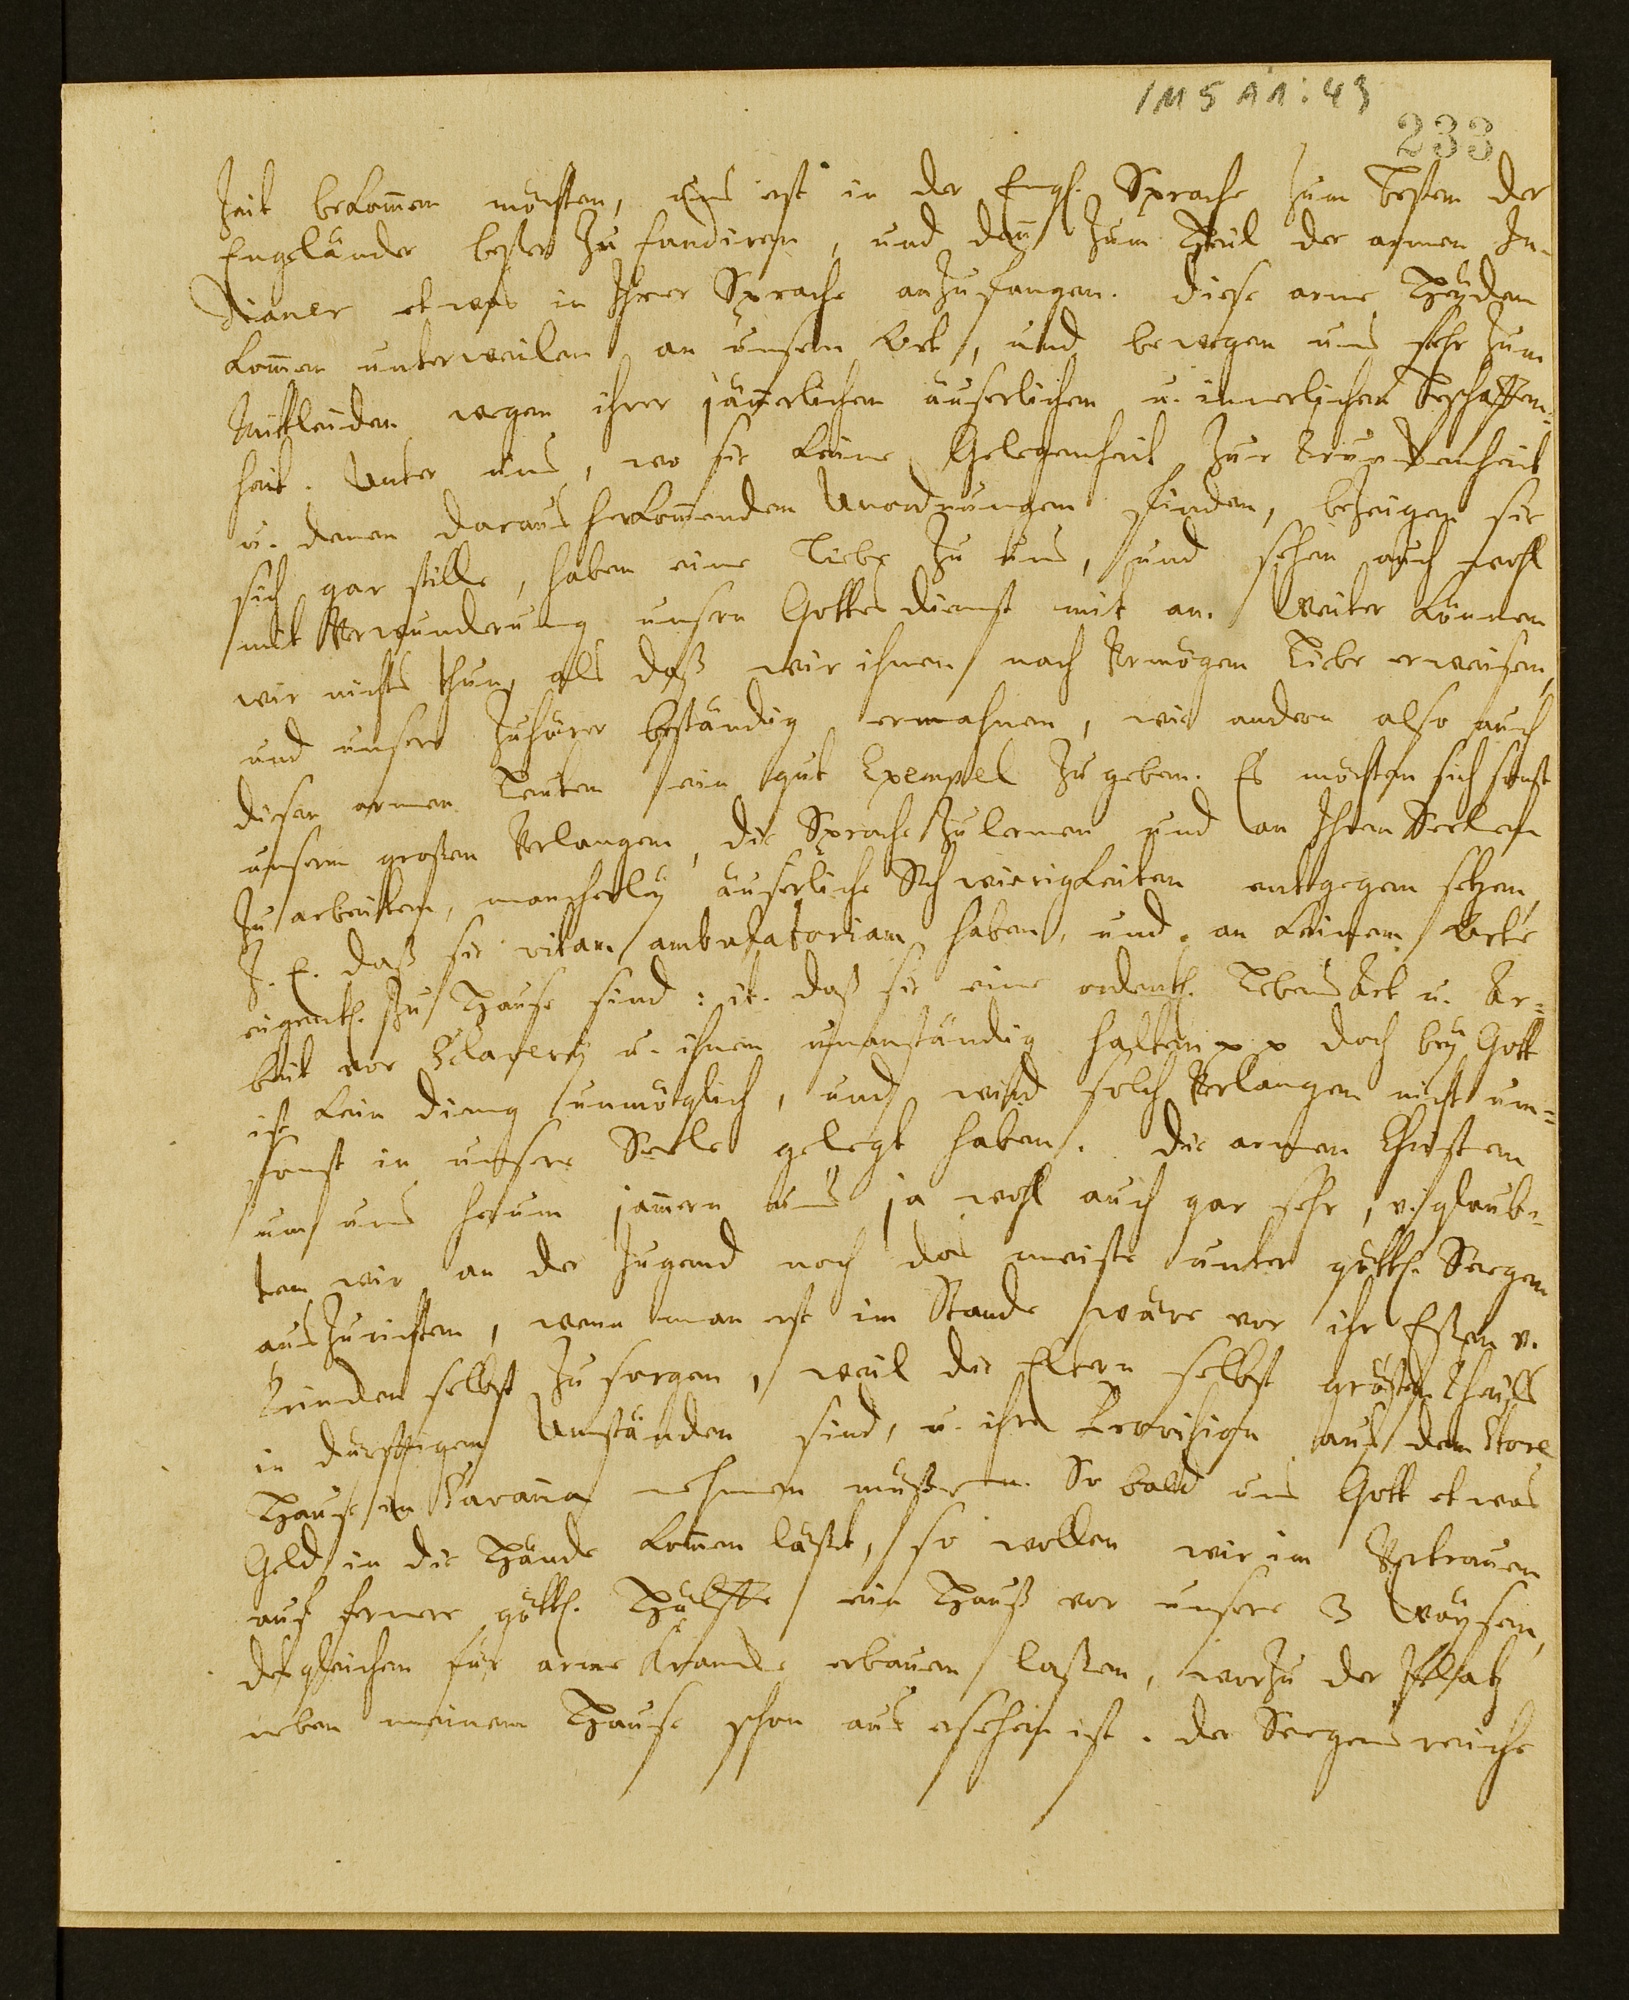 1M 5 A 11 : 43
233
Zeit bekom̄en möchten, uns erst in der Engl. Sprache zum besten der
Engeländer beßer zu fundiren, und dan̄ zum Heil der armen In-
dianer etwas in Ihrer Sprache anzufangen. Diese arme Heyden
kom̄en unterweilen an unsern Ort, und bewegen uns sehr zum
Mittleiden wegen ihrer jäm̄erlichen äuserlichen u. innerlichen Beschaffen-
heit. Unter uns, wo sie keine Gelegenheit zur Trunckenheit
u. denen daraus herkom̄enden Unordnungen finden, bezeigen sie
sich gar stille, haben eine Liebe zu uns, und sehen auch wohl
mit Verwunderung unsern Gottesdienst mit an. Weiter können
wir nichts thun, als daß wir ihnen nach Vermögen Liebe erweisen,
und unsere Zuhörer beständig ermahnen, wie andern also auch
diesen armen Leuten ein gut Exempel zu geben. Es möchten sich sonst
unserm großen Verlangen, die Sprache zu lernen und an Ihren Seelen
zu arbeiten, mancherley äuserliche Schwierigkeiten entgegen setzen,
z. E. daß sie vitam ambulatoriam haben, und an keinem Orte
eigentl. zu Hause sind: it. daß sie eine ordentl. Lebens Art u. Ar-
beit vor Sclaverey u. ihnen unanständig halten pp doch bey Gott
ist kein Ding unmöglich, und wird solch Verlangen nicht um-
sonst in unsere Seele gelegt haben. Die armen Christen
um uns herum jam̄ern uns ja wohl auch gar sehr, u. glaub-
ten wir an der Jugend noch das meiste unter göttl. Seegen
auszurichten, wenn man erst im Stande wäre vor ihr Eßen u.
Trincken selbst zu sorgen, weil die Eltern selbst grösten Theils
in dürfftigen Umständen sind, u. ihre Provision aus dem Store
Hause in Savan̄a nehmen müßen. So bald uns Gott etwas
Geld in die Hände kom̄en läßet, so wollen wir im Vertrauen
auf fernere göttl. Hülffe ein Hauß vor unsere 3 Wäysen,
desgleichen für arme Krancke erbauen laßen, worzu der Platz
neben meinem Hause schon aus ersehen ist. Der Seegens reiche